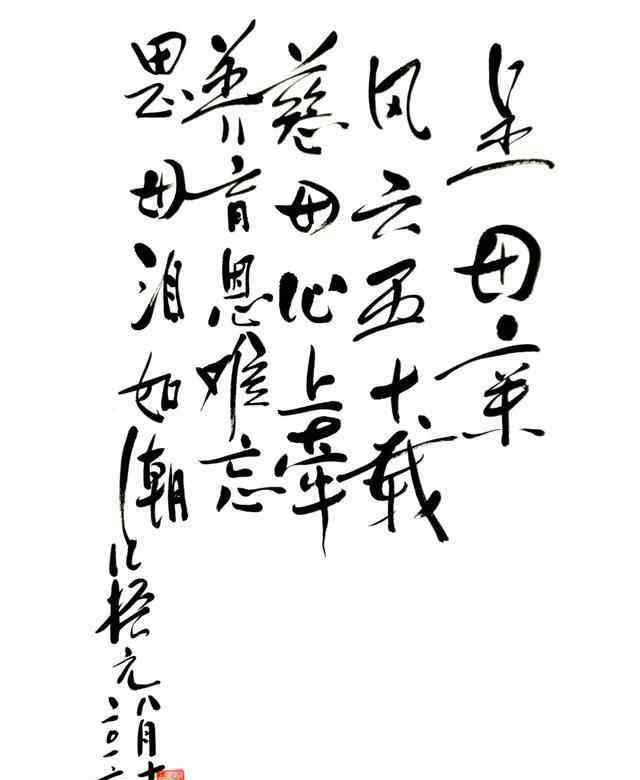 母亲
风云五十载
慈母心上牵
养育恩难忘
思母泪如潮
元八月十
二〇一